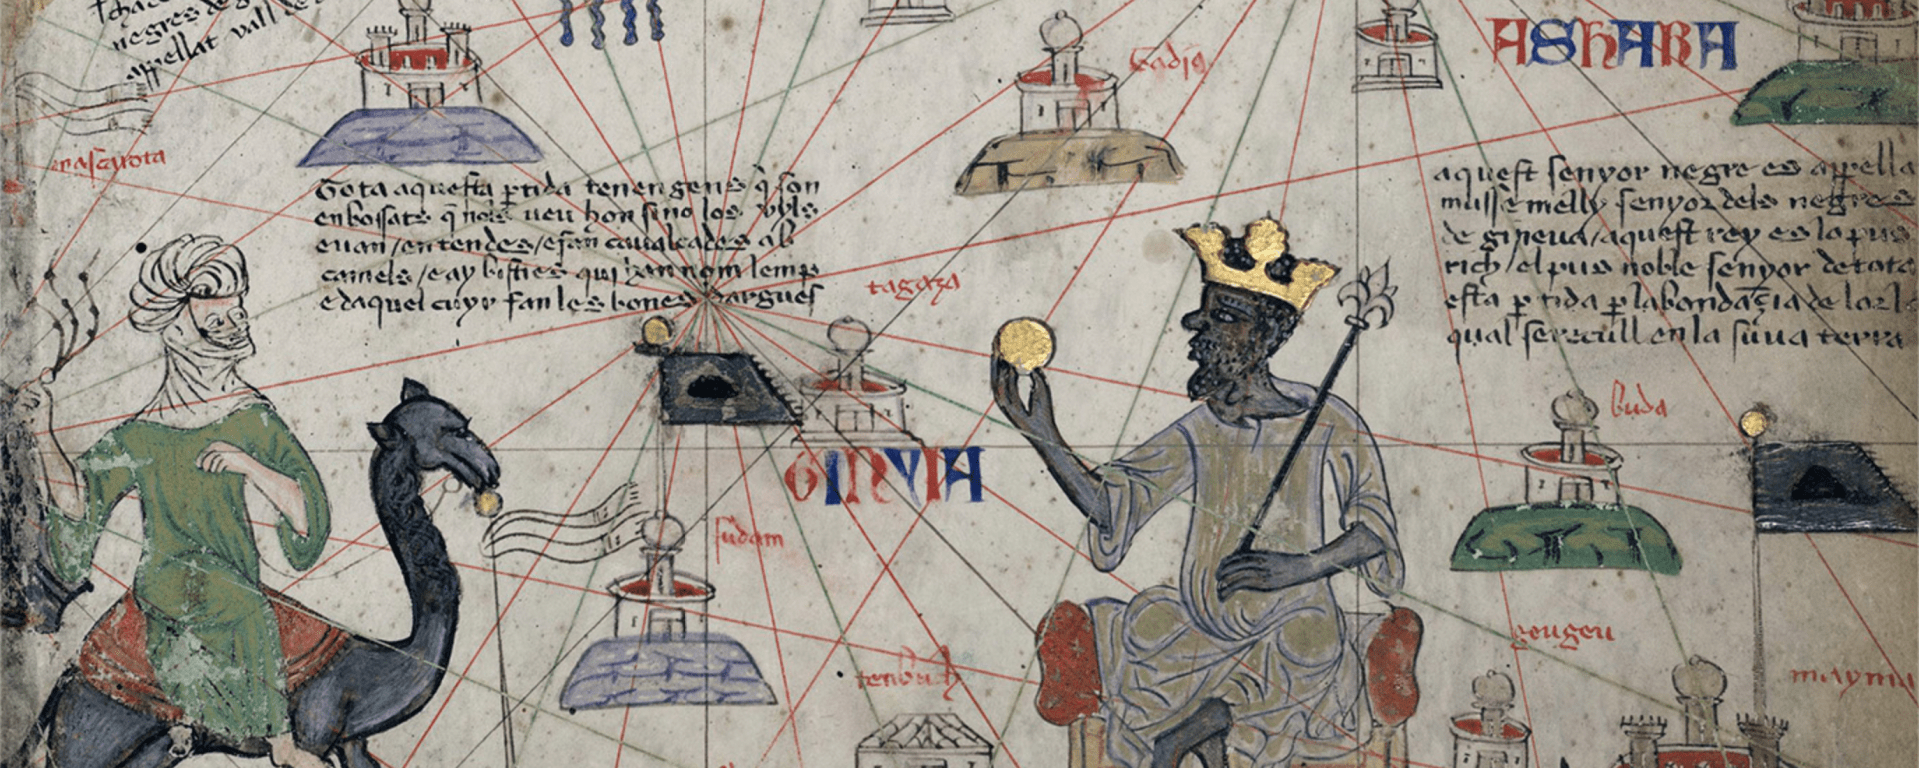 negres de g
appellat vall de
ASHARA
tagaza
Tota aquesta ptida tenen gens q son
enbossats q nols veu hom sino los uyls
e van en tendes e fan cavalcades ab
camels e ay bisties qui han nom lemp
e daquel cuyr fan les bones dargues
aquest senyor negre es appella
musse melly senyor dels negres
de gineva aquest rey es lo pus
rich el pus noble senyor de tota
esta ptida p labondacia de lor l
qual se recull en la suua terra
buda
GINYIA
sudam
tenbuch
geugeu
mayma